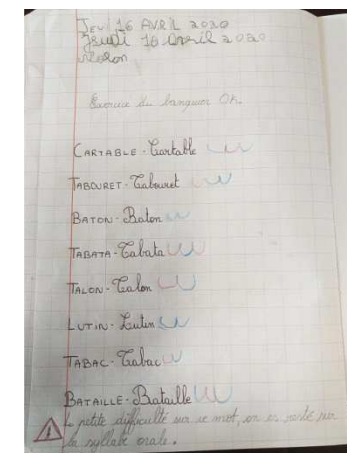 JEUDI 16 AVRIL 2020
Jeudi 16 avril 2020
Exercice du banquier OK.
CARTABLE - Cartable
TABOURET - Tabouret
BATON - Baton
TABATA - Tabata
TALON - Talon
LUTIN - Lutin
TABAC - Tabac
BATAILLE - Bataille
petite difficulté sur ce mot, on se porte sur
la syllabe orale.